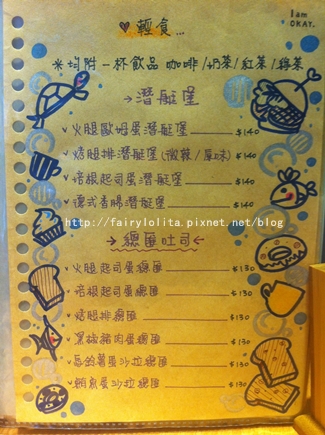 I am OKAY.
♥ 輕食...
※均附一杯飲品 咖啡/奶茶/紅茶/綠茶
潛艇堡
火腿歐姆蛋潛艇堡 $140
烤腿排潛艇堡(微辣/原味) $140
培根起司蛋潛艇堡 $140
德式香腸潛艇堡 $140
http://fairylolita.pixnet.net/blog
總匯吐司
火腿起司蛋總匯 $130
培根起司蛋總匯 $130
烤腿排總匯 $130
黑椒豬肉蛋總匯 $130
馬鈴薯蛋沙拉總匯 $130
鮪魚蛋沙拉總匯 $130